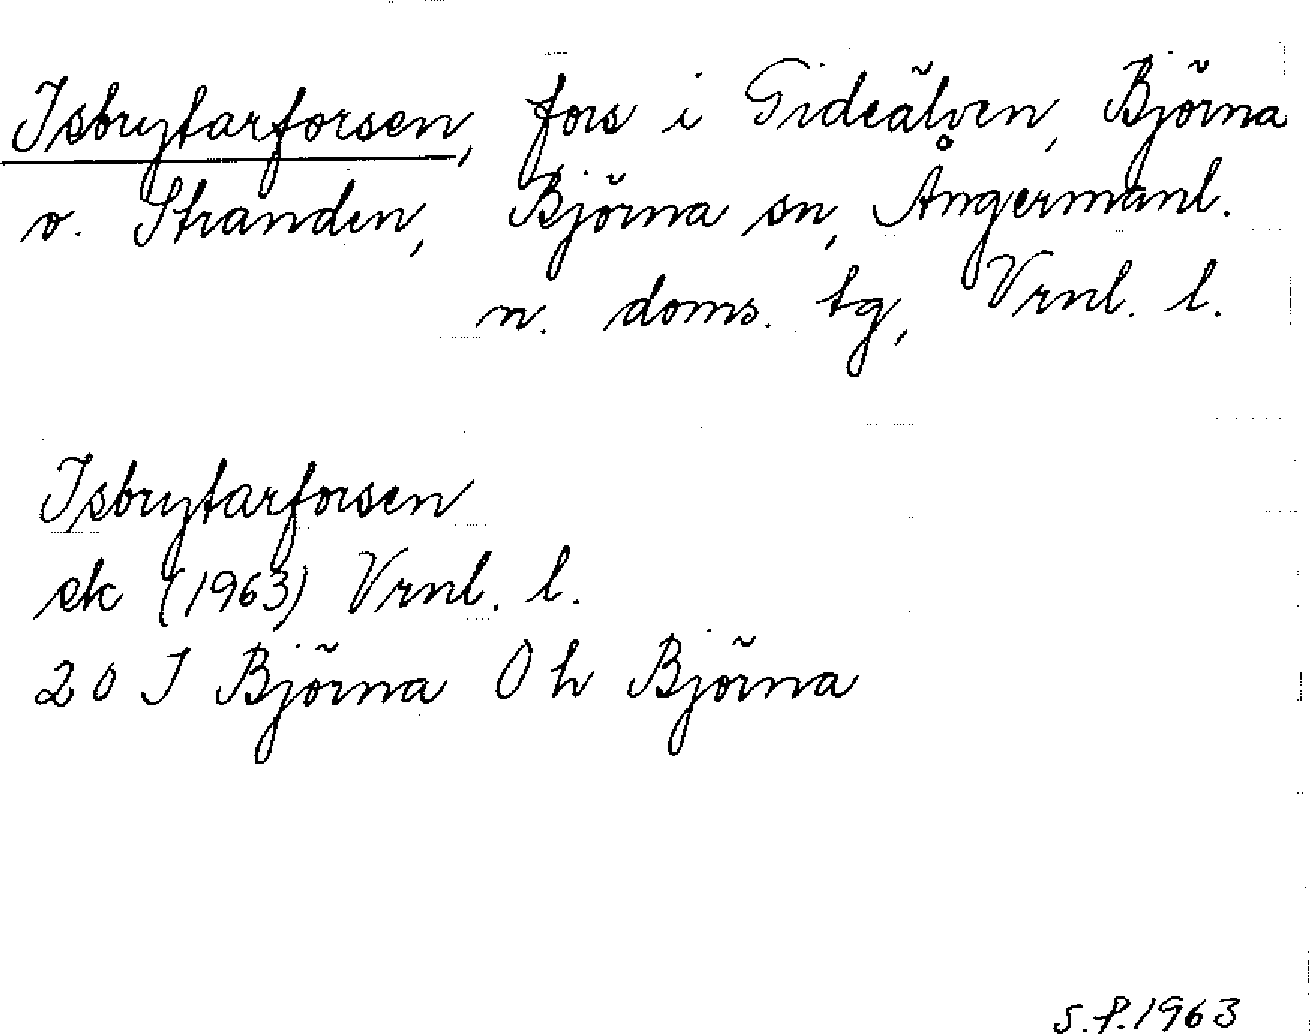 Isbrytarforsen, fors i Gideälven, Björna
o. Stranden, Björna sn, Ångermanl.
n. doms. tg, Vrnl. l.
Isbrytarforsen
ek (1963) Vrnl. l.
20 I Björna 0 h Björna
s.f. 1963